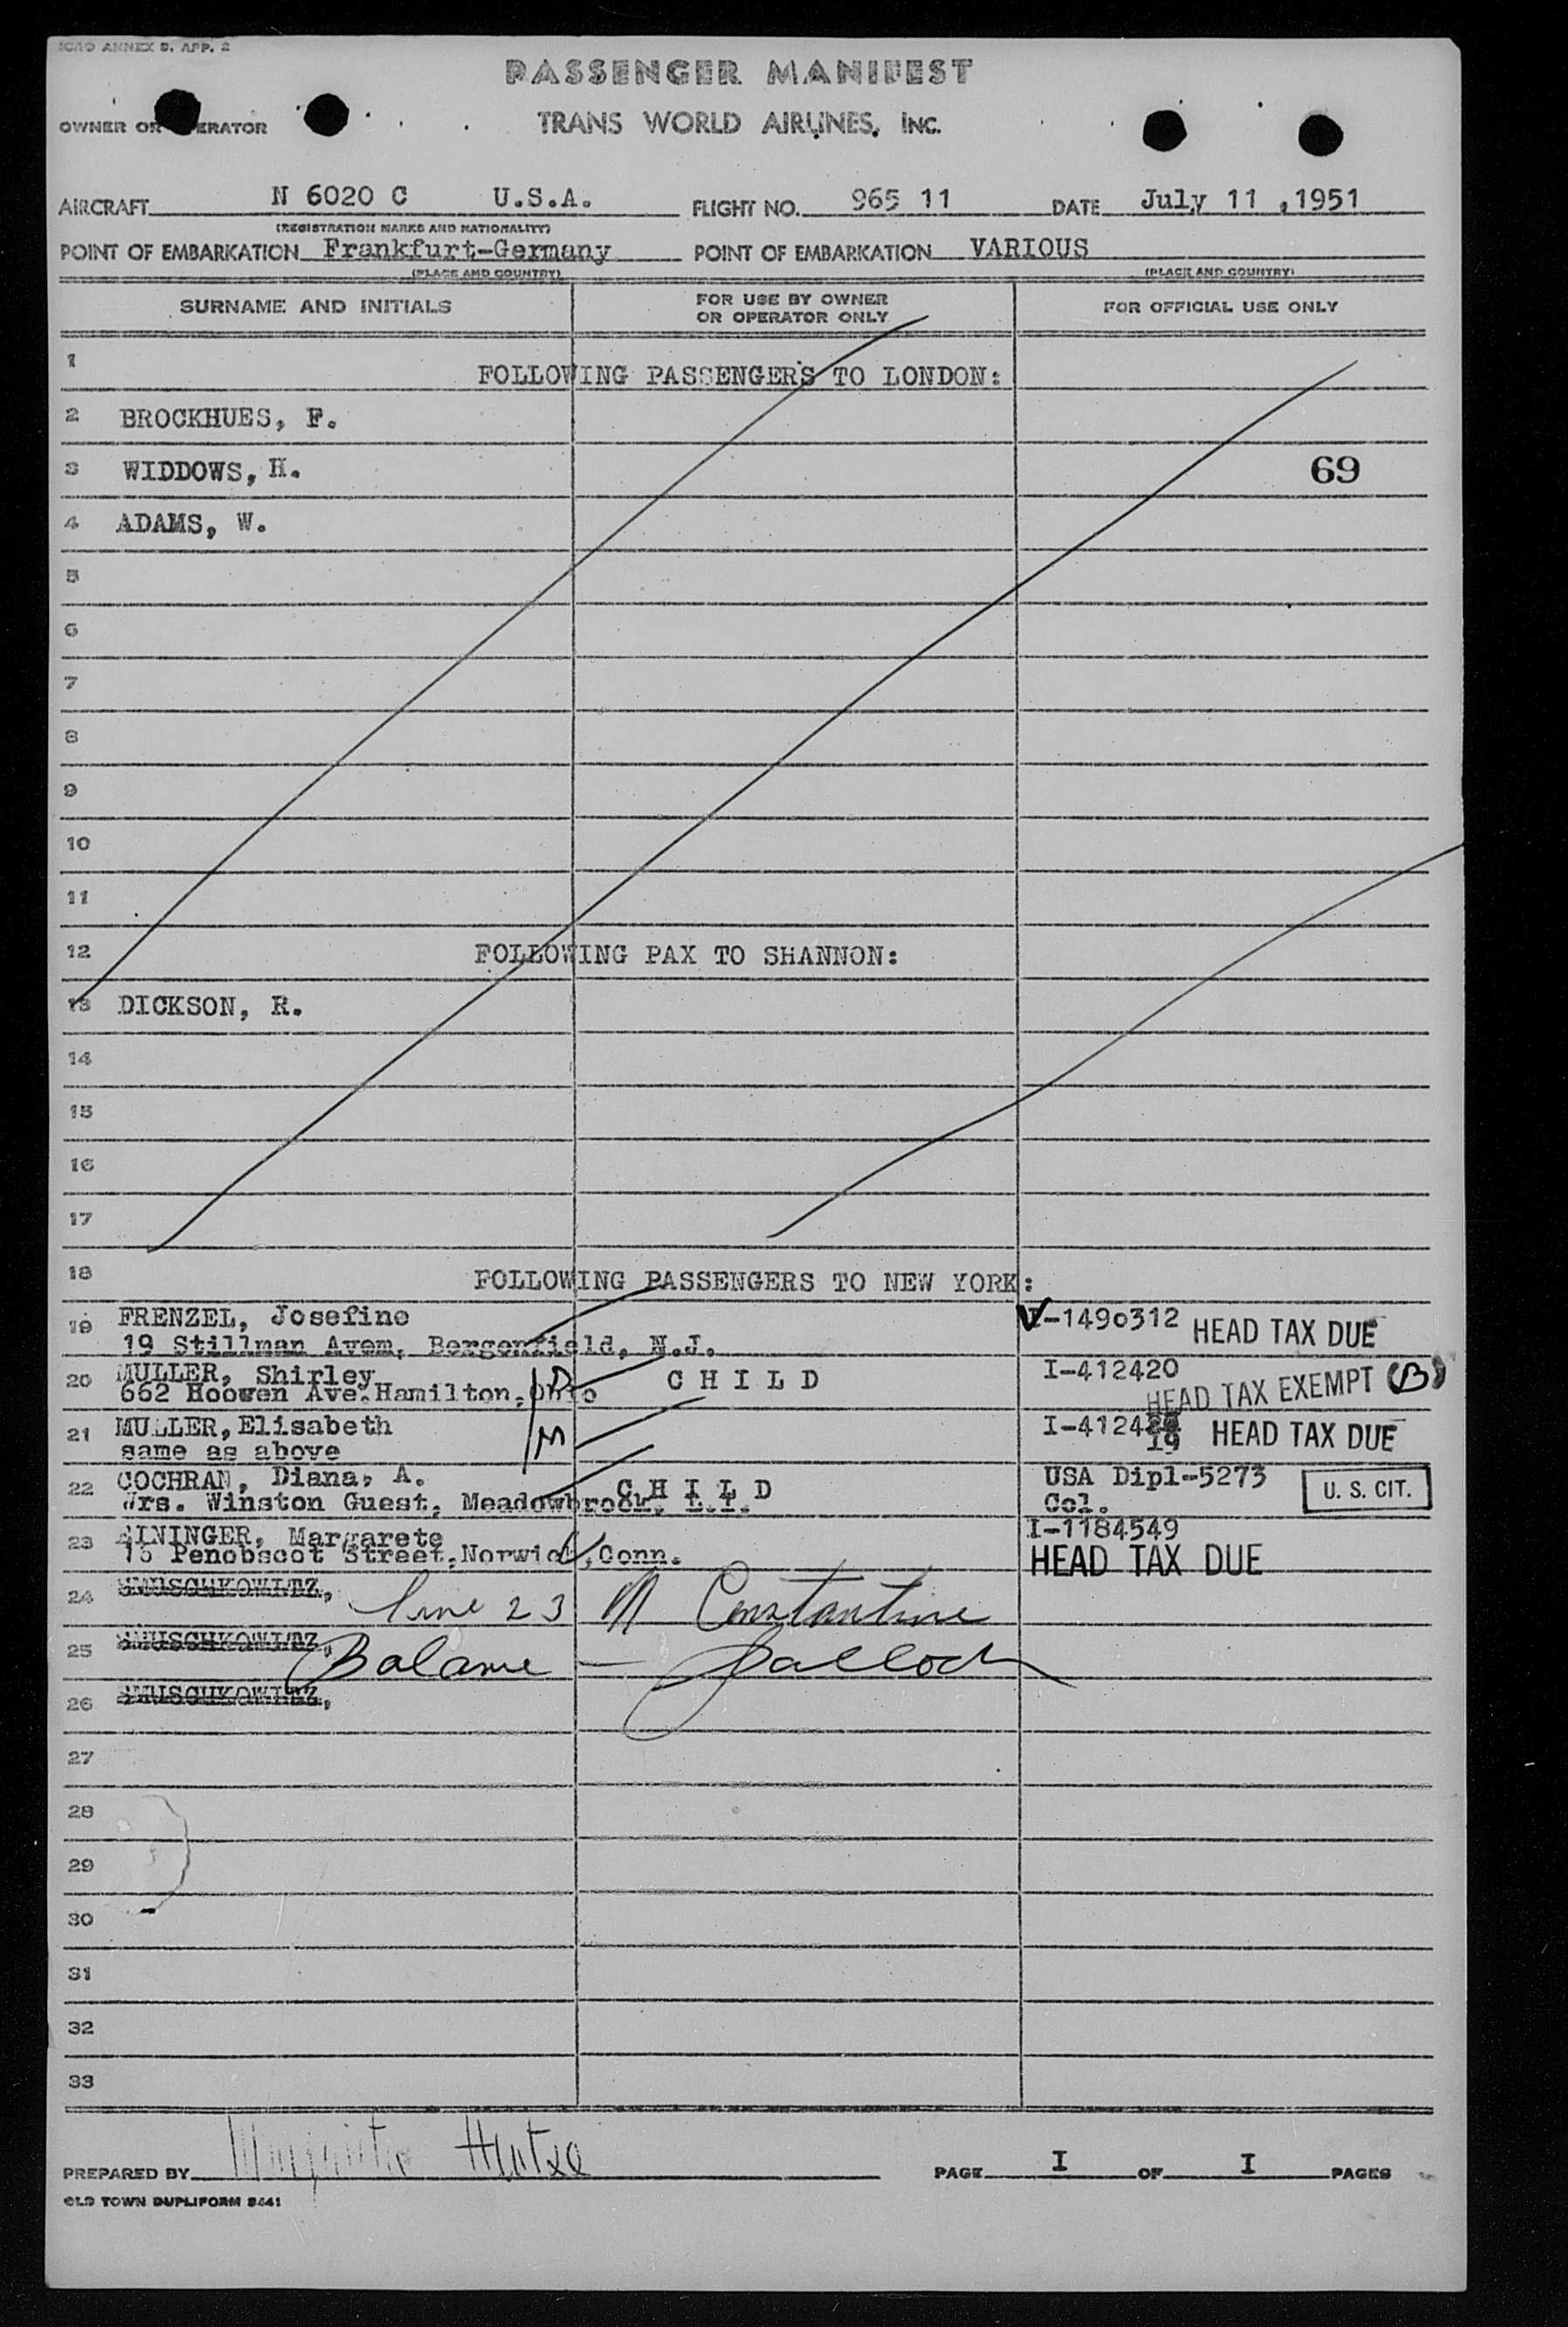 ICAO ANNEX 9. APP. 2
PASSENGER MANIFEST
OWNER OR OPERATOR TRANS WORLD AIRLINES, INC.
AIRCRAFT N 6020 C U.S.A. FLIGHT NO. 965 11 DATE July 11 ,1951
(REGISTRATION MARKS AND NATIONALITY)
POINT OF EMBARKATION Frankfurt-Germany POINT OF EMBARKATION VARIOUS
(PLACE AND COUNTRY) (PLACE AND COUNTRY)
SURNAME AND INITIALS FOR USE BY OWNER OR OPERATOR ONLY FOR OFFICIAL USE ONLY
1 FOLLOWING PASSENGERS TO LONDON:
2 BROCKHUES, F.
3 WIDDOWS, H. 69
4 ADAMS, W.
5
6
7
8
9
10
11
12 FOLLOWING PAX TO SHANNON:
13 DICKSON, R.
14
15
16
17
18 FOLLOWING PASSENGERS TO NEW YORK:
19 FRENZEL, Josefine I-1490312 HEAD TAX DUE
19 Stillman Avem, Bergenfield, N.J.
20 MULLER, Shirley C H I L D I-412420
662 Hoowen Ave.Hamilton,Ohio HEAD TAX EXEMPT (B)
21 MULLER,Elisabeth M I-412419 HEAD TAX DUE
same as above
22 COCHRAN, Diana, A. C H I L D USA Dipl-5273 U. S. CIT.
Mrs. Winston Guest, Meadowbrook, L.I. Col.
23 AININGER, Margarete I-1184549
Penobscot Street,Norwich,Conn. HEAD TAX DUE
24 SMUSCHKOWITZ, Line 23 M Constantine
25 SMUSCHKOWITZ, Balance -
26 SMUSCHKOWITZ,
27
28
29
30
31
32
33
PREPARED BY PAGE I OF I PAGES
OLD TOWN DUPLIFORM 8441